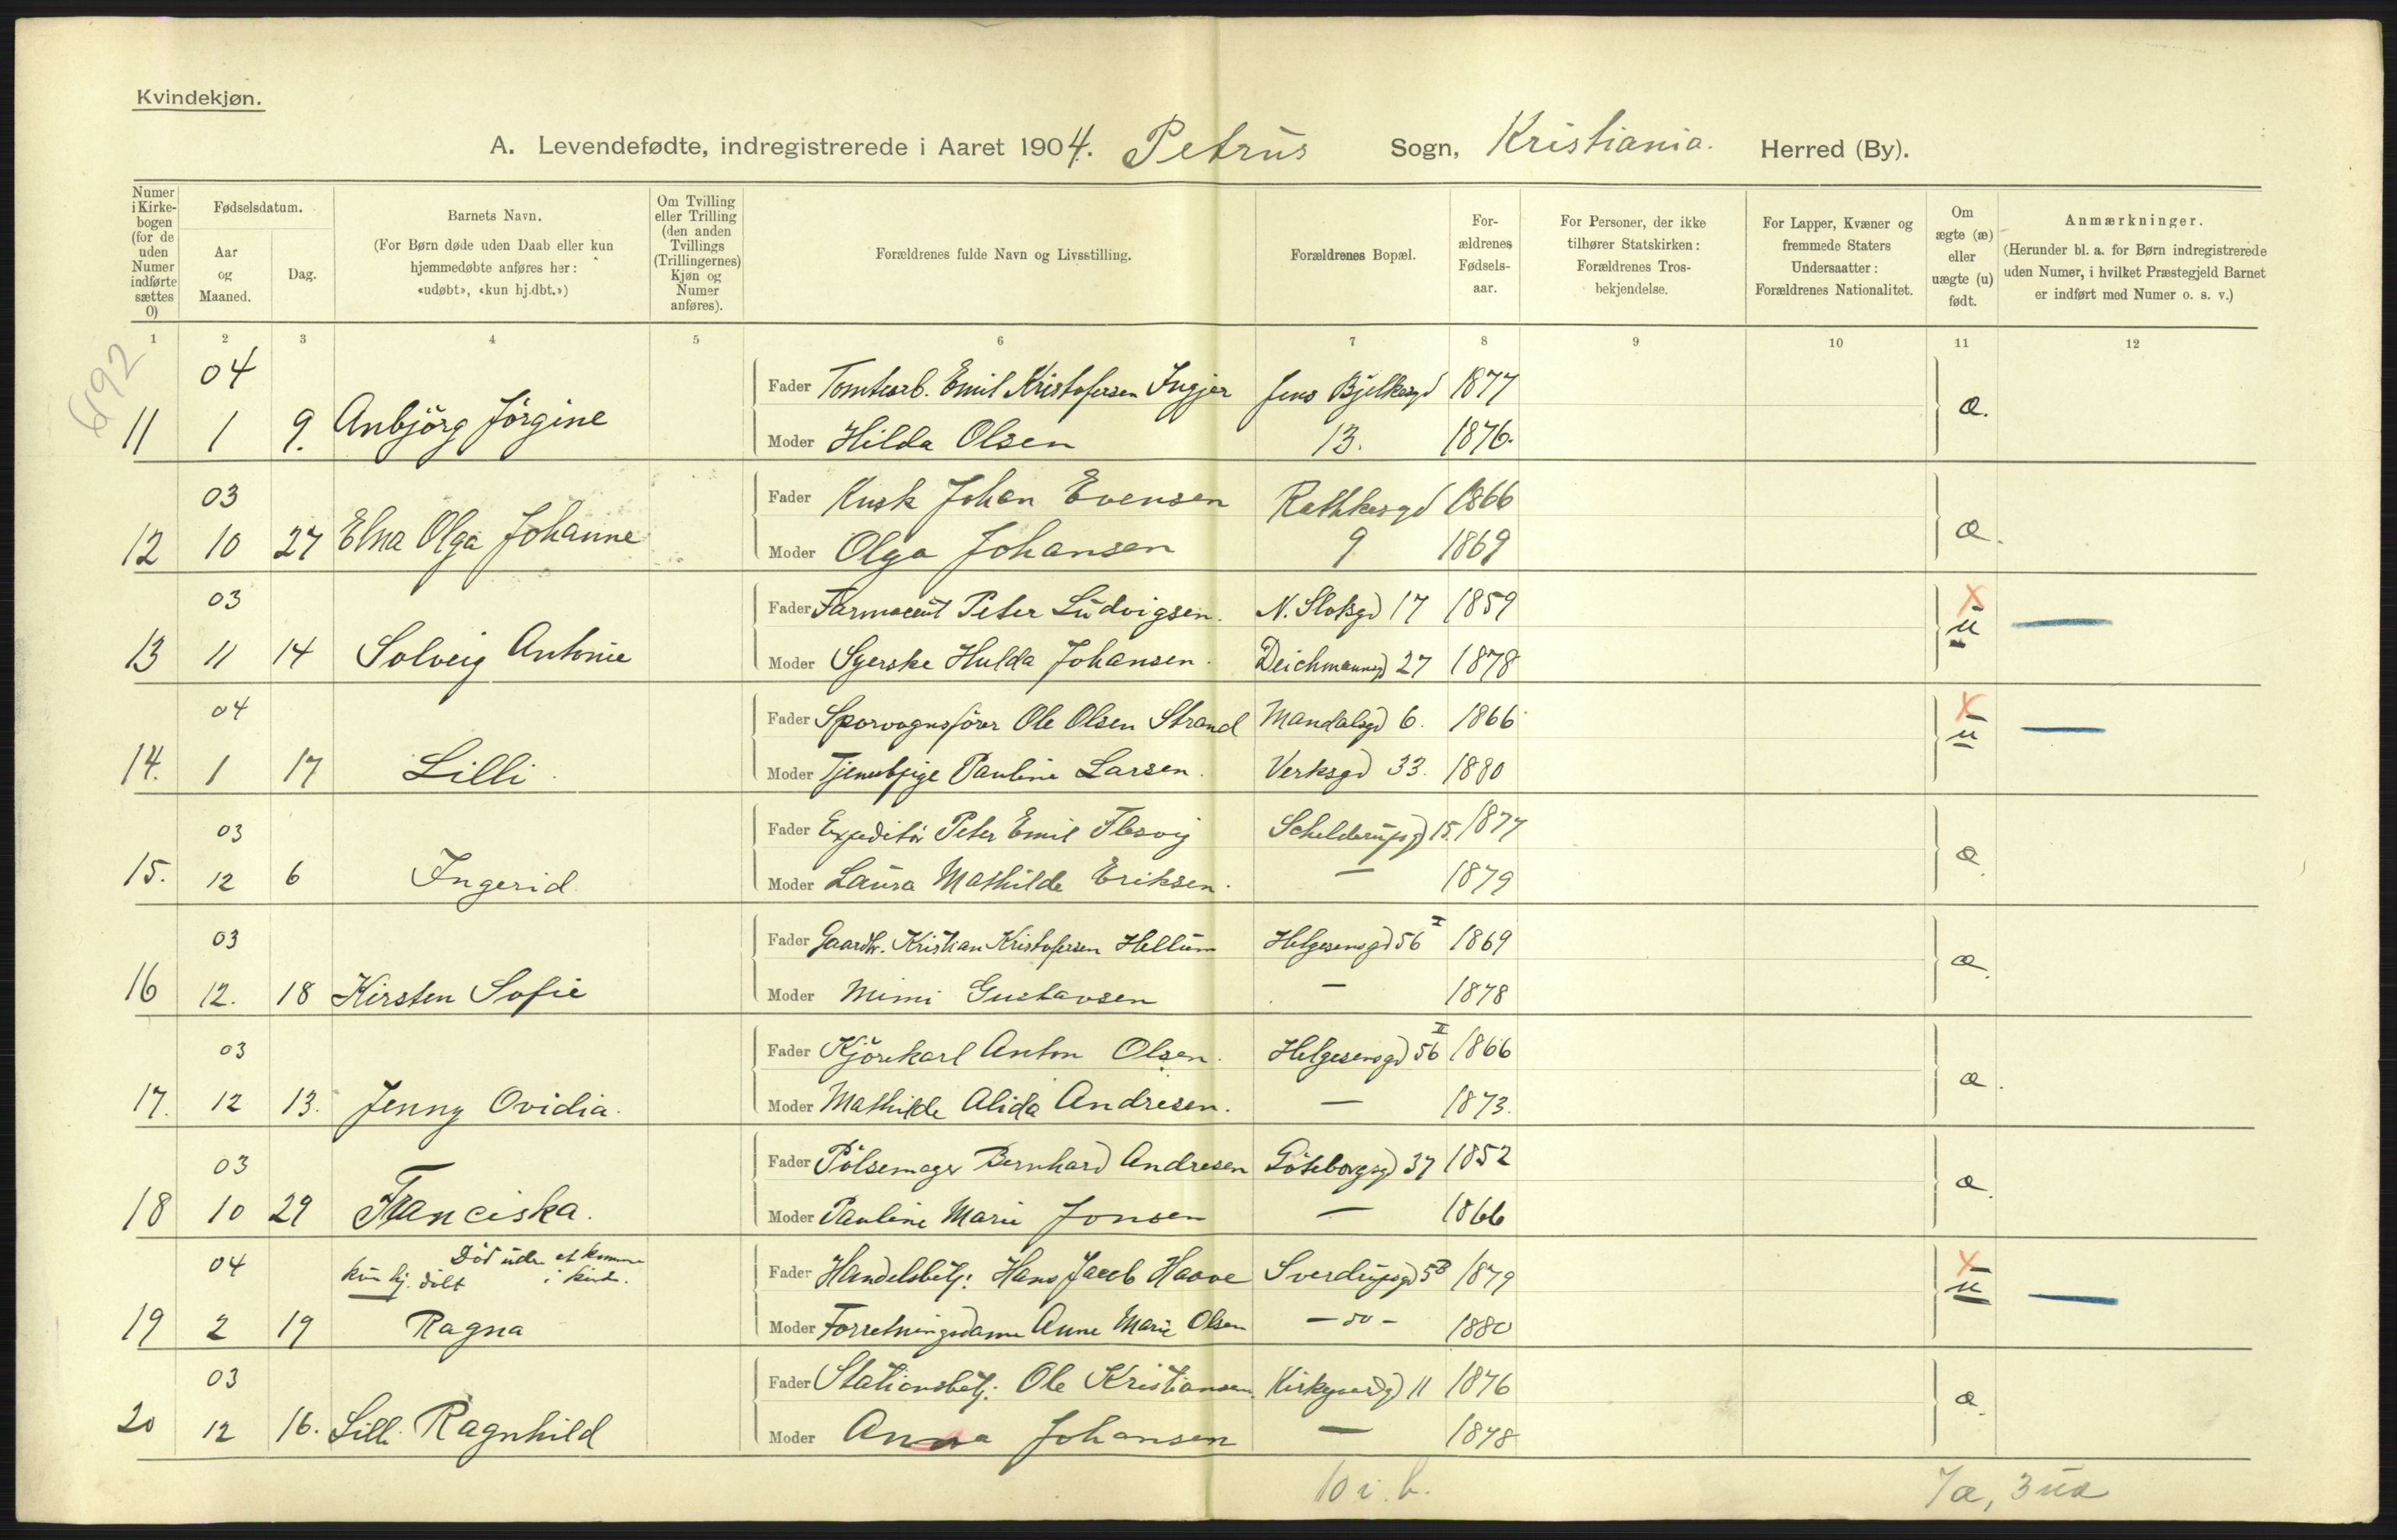 Kvindekjøn.
A. Levendefødte, indregistrerede i Aaret 1904. Petrus Sogn, Kristiania. Herred (By).
Numer i Kirkebogen (for de uden Numer indførte sættes 0)
Fødselsdatum.
Aar og Maaned.
Dag.
Barnets Navn.
(For Børn døde uden Daab eller kun hjemmedøbte anføres her: «udøbt», «kun hj.dbt.»)
Om Tvilling eller Trilling (den anden Tvillings (Trillingernes) Kjøn og Numer anføres).
Forældrenes fulde Navn og Livsstilling.
Forældrenes Bopæl.
Forældrenes Fødselsaar.
For Personer, der ikke tilhører Statskirken: Forældrenes Trosbekjendelse.
For Lapper, Kvæner og fremmede Staters Undersaatter: Forældrenes Nationalitet.
Om ægte (æ) eller uægte (u) født.
Anmærkninger.
(Herunder bl. a. for Børn indregistrerede uden Numer, i hvilket Præstegjeld Barnet er indført med Numer o. s. v.)
1 2 3 4 5 6 7 8 9 10 11 12
6192
04 Fader Tomtearb. Emil Kristofersen Ingjer Jens Bjelkesgd 1877
11 1 9. Anbjörg Jörgine Moder Hilda Olsen 13. 1876. æ.
03 Fader Kusk Johan Evensen Rathkesgd 1866
12 10 27 Elna Olga Johanne Moder Olga Johansen 9 1869 æ.
03 Fader Farmaceut Peter Ludvigsen. N. Slotsgd 17 1859 x
13 11 14 Solveig Antonie Moder Syerske Hulda Johansen. Deichmannsgd 27 1878 u —
04 Fader Sporvognsfører Ole Olsen Strand Mandalsgd 6. 1866 x
14. 1 17 Lilli Moder Tjenestpige Pauline Larsen. Verksgd 33. 1880 u —
03 Fader Expeditör Peter Emil Flesvig Schelderupsgd 15. 1877
15. 12 6 Ingerid Moder Laura Mathilde Eriksen. — 1879 æ.
03 Fader Gaardbr. Kristian Kristofersen Hellum Helgesensgd 56 I 1869
16 12. 18 Kirsten Sofie Moder Mimi Gustavsen — 1878 æ.
03 Fader Kjörekarl Anton Olsen. Helgesensgd 56 II 1866
17. 12 13. Jenny Ovidia. Moder Mathilde Alida Andresen. — 1873. æ.
03 Fader Pölsemager Bernhard Andresen Göteborgsgd 37 1852
18 10 29 Franciska. Moder Pauline Marie Jonsen — 1866 æ.
04 kun hj. döbt Död uden at komme i kirke. Fader Handelsbetj: Hans Jacob Haave Sverdrupsgd 5B 1879 x
19 2 19 Ragna Moder Forretningsdame Anne Marie Olsen — do — 1880 u —
03 Fader Stationsbetj: Ole Kristiansen. Kirkegaardsgd 11 1876
20 12 16. Lilli Ragnhild Moder Anna Johansen — 1878 æ.
10 i. b. 7æ, 3uæ